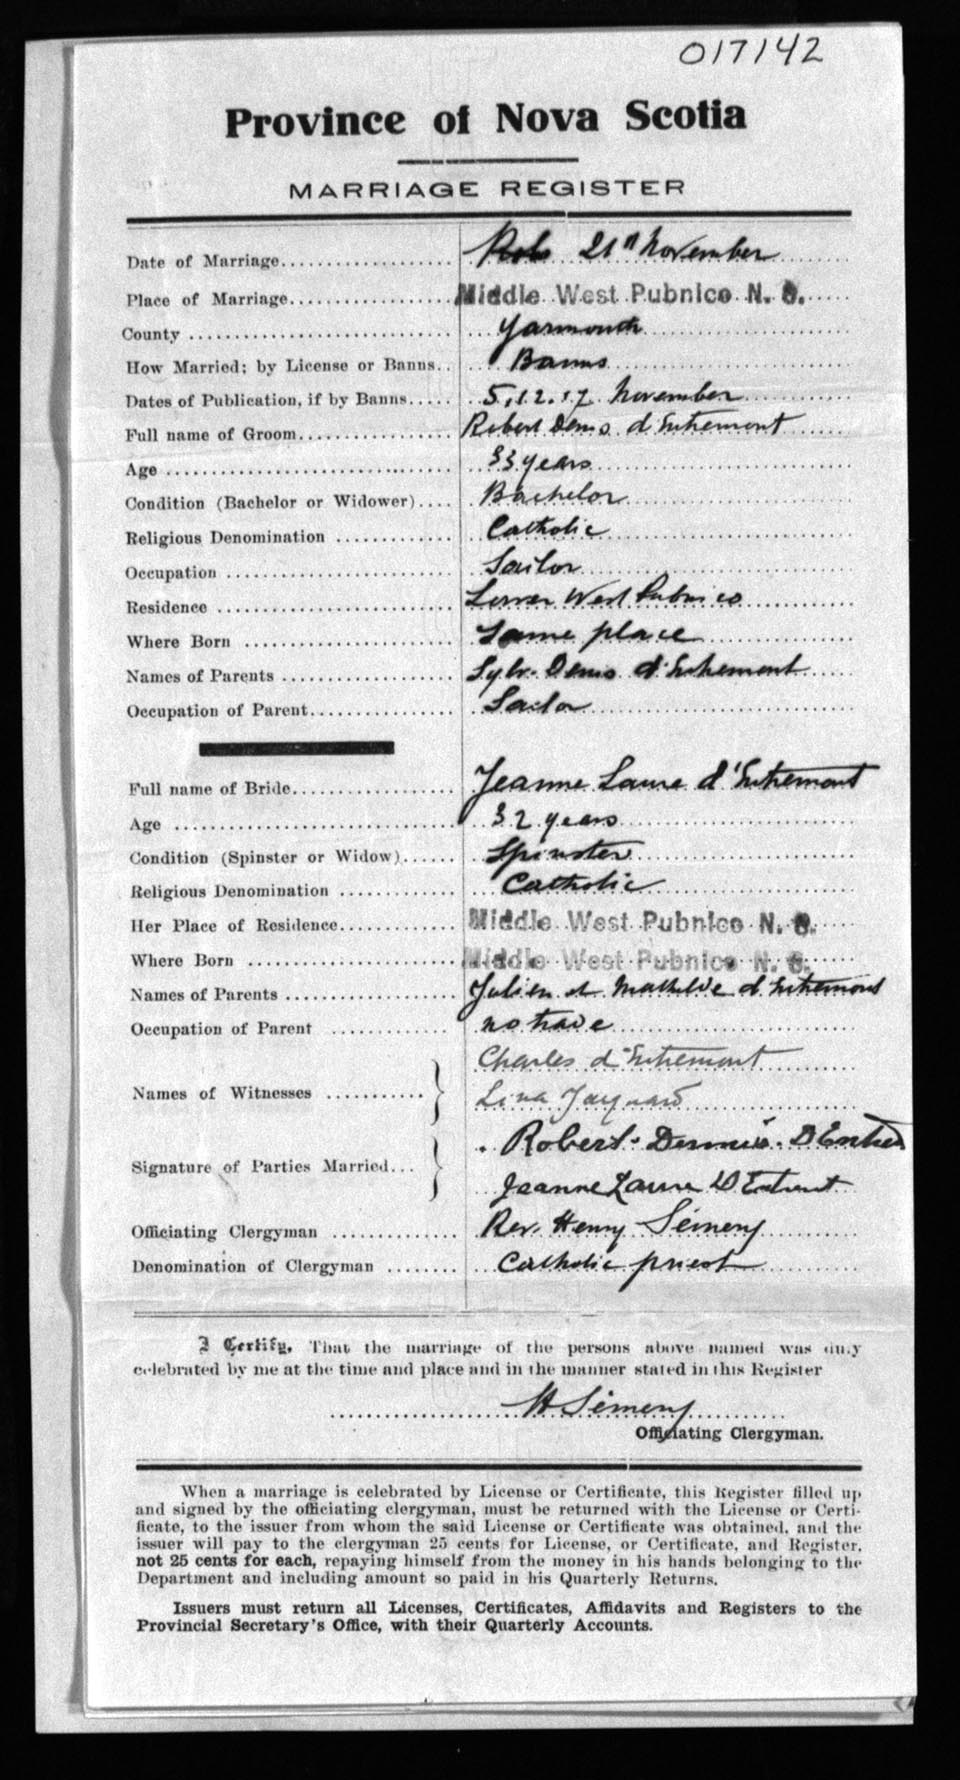 017142
Province of Nova Scotia
MARRIAGE REGISTER
Date of Marriage 21st November
Place of Marriage Middle West Pubnico N. S.
County Yarmouth
How Married; by License or Banns Banns
Dates of Publication, if by Banns 5, 12. 17 November
Full name of Groom Robert Denis d'Entremont
Age 33 years
Condition (Bachelor or Widower) Bachelor
Religious Denomination Catholic
Occupation Sailor
Residence Lower West Pubnico
Where Born Same place
Names of Parents Sylv. Denis d'Entremont
Occupation of Parent Sailor
Full name of Bride Jeanne Laure d'Entremont
Age 32 years
Condition (Spinster or Widow) Spinster
Religious Denomination Catholic
Her Place of Residence Middle West Pubnico N. S.
Where Born Middle West Pubnico N. S.
Names of Parents Julien et Mathilde d'Entremont
Occupation of Parent no trade
Charles d'Entremont
Names of Witnesses
Lina
Robert Dennis
Signature of Parties Married
Jeanne Laure
Officiating Clergyman Rev. Henry
Denomination of Clergyman Catholic priest
I Certify, That the marriage of the persons above named was duly
celebrated by me at the time and place and in the manner stated in this Register
H
Officiating Clergyman.
When a marriage is celebrated by License or Certificate, this Register filled up
and signed by the officiating clergyman, must be returned with the License or Certi-
ficate, to the issuer from whom the said License or Certificate was obtained, and the
issuer will pay to the clergyman 25 cents for License, or Certificate, and Register,
not 25 cents for each, repaying himself from the money in his hands belonging to the
Department and including amount so paid in his Quarterly Returns.
Issuers must return all Licenses, Certificates, Affidavits and Registers to the
Provincial Secretary's Office, with their Quarterly Accounts.